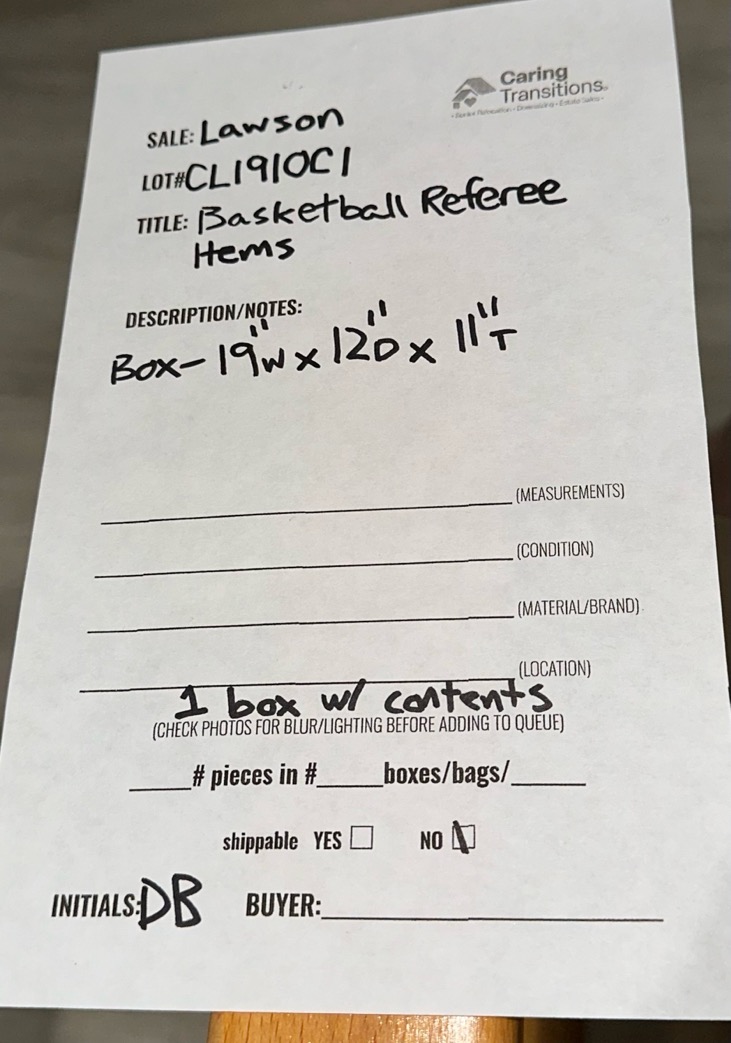 Caring
Transitions
SALE: Lawson
LOT# CL1910C1
TITLE: Basketball Referee
Items
DESCRIPTION/NOTES:
Box- 19"W x 12"D x 11"T
(MEASUREMENTS)
(CONDITION)
(MATERIAL/BRAND)
(LOCATION)
1 box w/ contents
(CHECK PHOTOS FOR BLUR/LIGHTING BEFORE ADDING TO QUEUE)
# pieces in # boxes/bags/
shippable YES NO
INITIALS: DB BUYER: